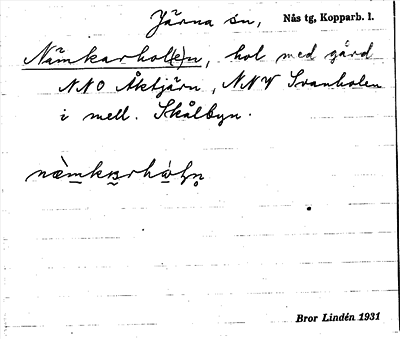 Järna sn, Nås tg, Kopparb. l.
Nämkarhol(e)n, hol med gård
NNO Åktjärn, NNV Svanholen
i mell. Skålbyn.
Bror Lindén 1931